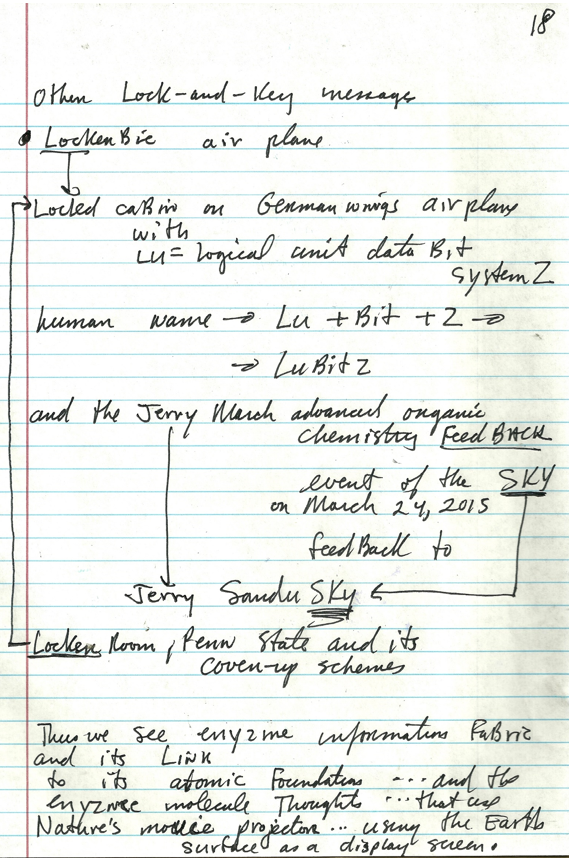 18
Other Lock-and-Key messages
• LockenBie air plane
Locked caBin on Germanwings airplane
with
LU = logical unit data Bit
system Z
human name → Lu + Bit + Z →
→ LuBitZ
and the Jerry March advanced organic
chemistry FeedBACK
event of the SKY
on March 24, 2015
feedBack to
Jerry SanduSKy
Locker Room, Penn State and its
cover-up schemes
Thus we see enyzme information FaBric
and its LINK
to its atomic Foundation .... and the
enyzme molecule Thoughts ... that use
Nature's movie projector ... using the Earth
surface as a display screen.